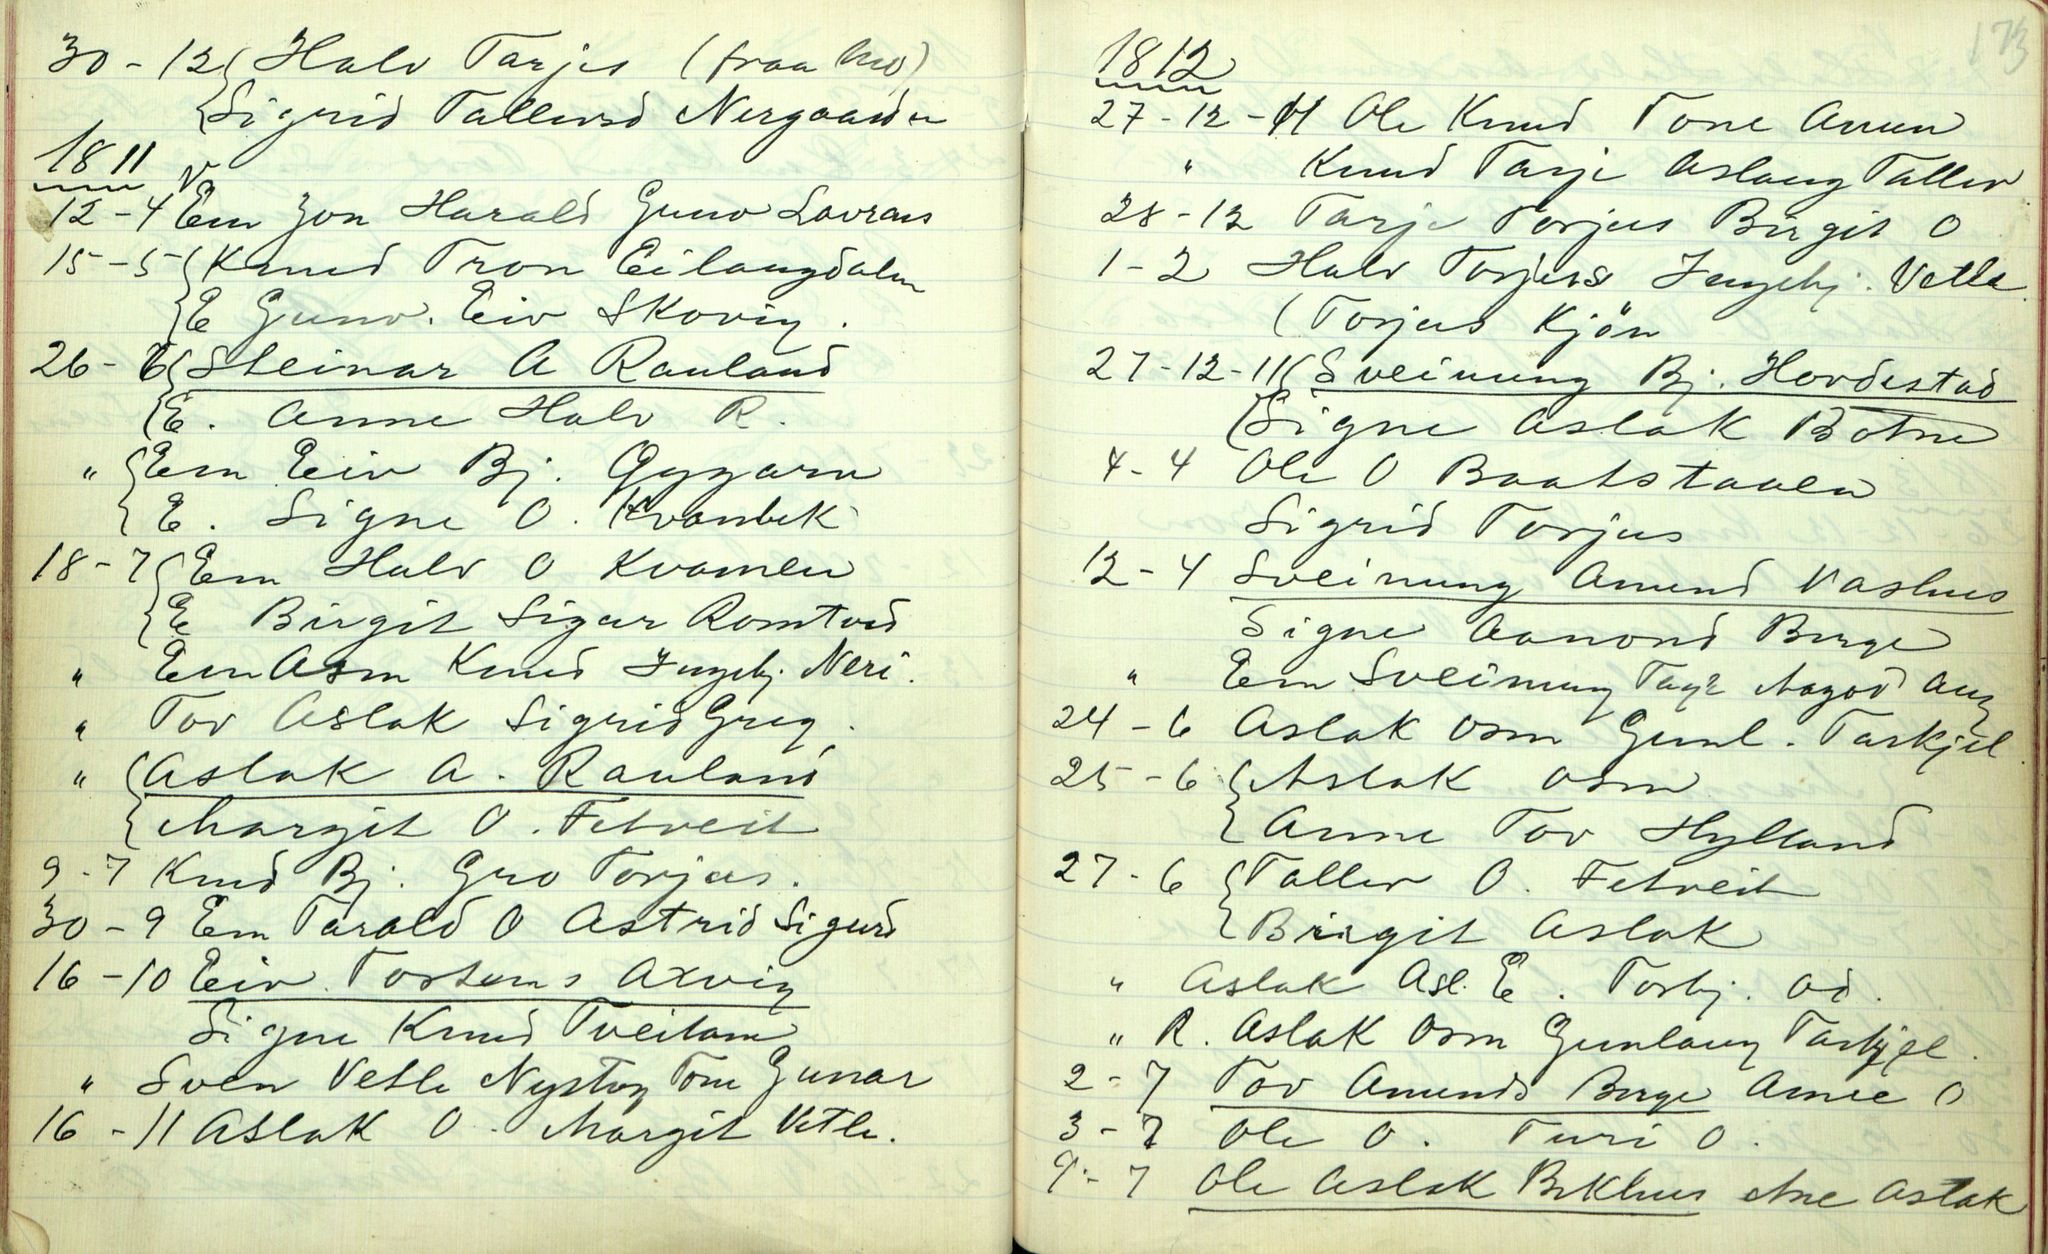 30 - 12 Halv Tarjes (fraa Mo)
Sigrid Tallevsd Nergaarden
1811
12 - 4 Em Jon Harald Gunv Lavrans
15 - 5 Knud Tron Eilangdalen
E Gunv. Eiv Skovig.
26 - 6 Steinar A Rauland
E. Anne Halv R.
" Em Eiv Bj. Gygarn
E. Signe O. Kvambek
18 - 7 Em Halv O Kvamlen
E Birgit Sigur Romtved
" Em Asm Knud Ingebj. Neri.
" Tov Aslak Sigrid Greg.
" Aslak A. Rauland
Margit O. Fetveit
9 - 7 Knud Bj. Gro Torjus.
30 - 9 Em Tarald O Astrid Sigurd
16 - 10 Eiv Torstens Axvig
Signe Knud Tveitane
" Sven Vetle Nystog Tone Gunar
16 - 11 Aslak O. Margit Vetle.
173
1812
27 - 12 - 11 Ole Knud Tone Anun
" Knud Tarje Aslaug Tallev
28 - 12 Tarje Torjus Birgit O
1 - 2 Halv Torjus Ingebj. Vetle
(Torjus Kjøn
27 - 12 - 11 Sveinung Bj. Hordestad
Signe Aslak Botne
4 - 4 Ole O Baatstaalen
Sigrid Torjus
12 - 4 Sveinung Amund Vashus
Signe Aamond Berge
" Em Sveinung Tarje Aagod Aug
24 - 6 Aslak Osm Gunl. Tarkjel
25 - 6 Aslak Osm
Anne Tov Hylland
27 - 6 Tallev O. Fetveit
Birgit Aslak
" Aslak Asl. E. Torbj. Od.
" R. Aslak Osm Gunlaug Tarkjel.
2 - 7 Tov Amunds Berge Anne O
3 - 7 Ole O. Turi O.
9 - 7 Ole Aslak Bekhus Ane Aslak